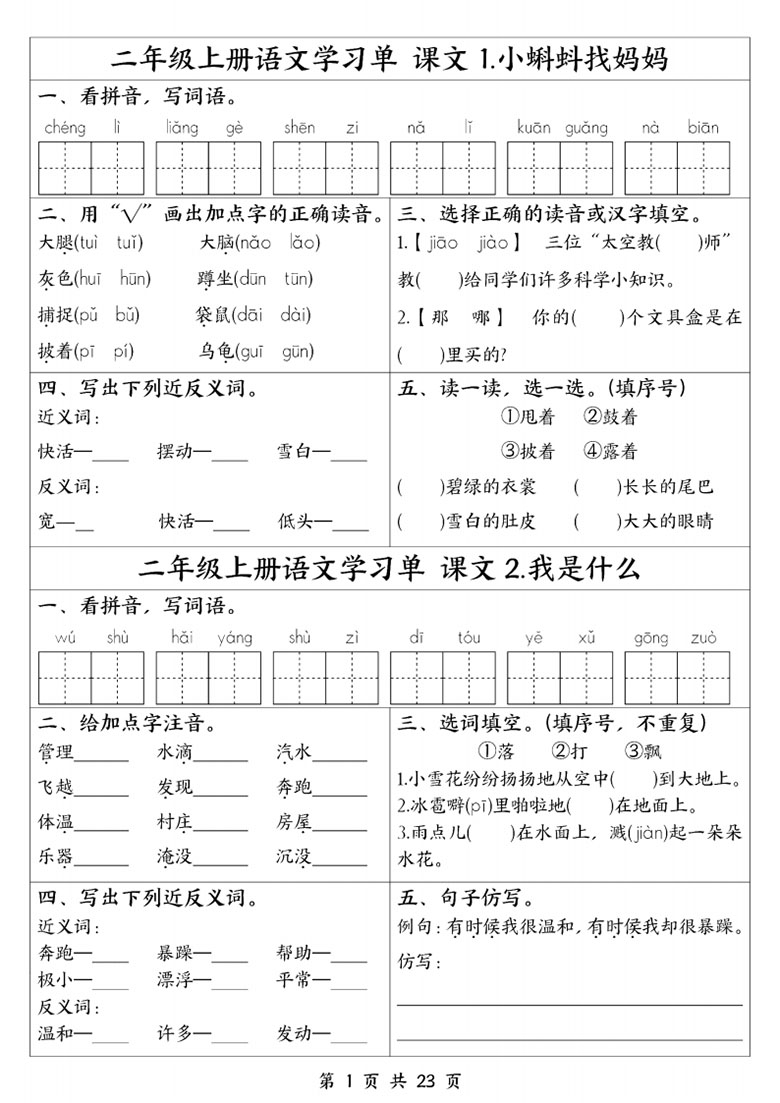 二年级上册语文学习单 课文 1.小蝌蚪找妈妈
一、看拼音，写词语。
chéng lì liǎng gè shēn zi nǎ lǐ kuān guǎng nà biān
二、用“√”画出加点字的正确读音。
大腿(tuì tuǐ) 大脑(nǎo lǎo)
灰色(huī hūn) 蹲坐(dūn tūn)
捕捉(pǔ bǔ) 袋鼠(dāi dài)
披着(pī pí) 乌龟(guī gūn)
三、选择正确的读音或汉字填空。
1.【 jiāo jiào 】 三位“太空教( )师”
教( )给同学们许多科学小知识。
2.【 那 哪 】 你的( )个文具盒是在
( )里买的?
四、写出下列近反义词。
近义词：
快活—____ 摆动—____ 雪白—____
反义词：
宽—__ 快活—____ 低头—____
五、读一读，选一选。（填序号）
①甩着 ②鼓着
③披着 ④露着
( )碧绿的衣裳 ( )长长的尾巴
( )雪白的肚皮 ( )大大的眼睛
二年级上册语文学习单 课文 2.我是什么
一、看拼音，写词语。
wú shù hǎi yáng shù zì dī tóu yě xǔ gōng zuò
二、给加点字注音。
管理______ 水滴______ 汽水______
飞越______ 发现______ 奔跑______
体温______ 村庄______ 房屋______
乐器______ 淹没______ 沉没______
三、选词填空。（填序号，不重复）
①落 ②打 ③飘
1.小雪花纷纷扬扬地从空中( )到大地上。
2.冰雹噼(pī)里啪啦地( )在地面上。
3.雨点儿( )在水面上，溅(jiàn)起一朵朵
水花。
四、写出下列近反义词。
近义词：
奔跑—____ 暴躁—____ 帮助—____
极小—____ 漂浮—____ 平常—____
反义词：
温和—____ 许多—____ 发动—____
五、句子仿写。
例句：有时候我很温和，有时侯我却很暴躁。
仿写：
第 1 页 共 23 页